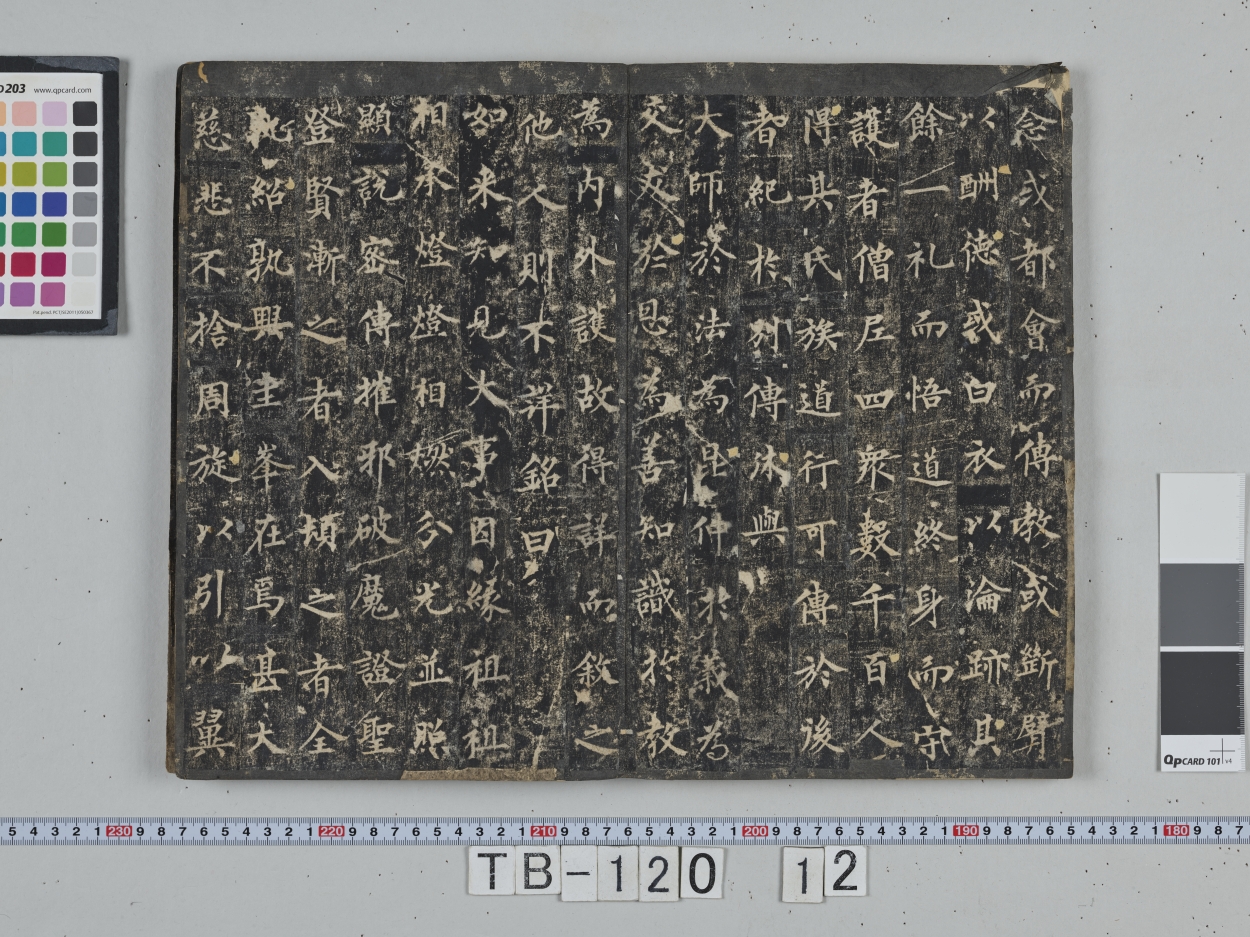 念或都會而傳教或斷臂
以酬德或白衣以淪跡其
餘一礼而悟道終身而守
護者僧尼四衆數千百人
得其氏族道行可傳於後
者紀於別傳休與
大師於法為昆仲於義為
交友於恩為善知識於教
為內外護故得詳而敘之
他人則不詳銘曰
如来知見大事因緣祖祖
相承燈燈相燃分光並照
顯說密傳摧邪破魔證聖
登賢漸之者入頓之者全
孰紹孰興圭峯在焉甚大
慈悲不捨周旋以引以翼
203 www.qpcard.com
QPCARD 101 v4
5 4 3 2 1 230 9 8 7 6 5 4 3 2 1 220 9 8 7 6 5 4 3 2 1 210 9 8 7 6 5 4 3 2 1 200 9 8 7 6 5 4 3 2 1 190 9 8 7 6 5 4 3 2 1 180 9 8 7
TB-120 12